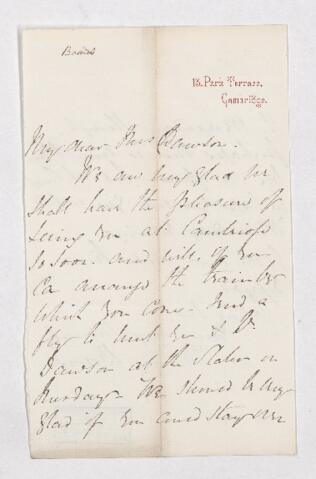 13, Park Terrace,
Cambridge.
My dear Mrs Dawson.
We are very glad we
shall have the pleasure of
seeing you at Cambridge
so soon. and will, if you
can arrange the train by
which you come. send a
fly to meet you & Dr
Dawson at the Station on
Thursday. We should be very
glad if you could stay over